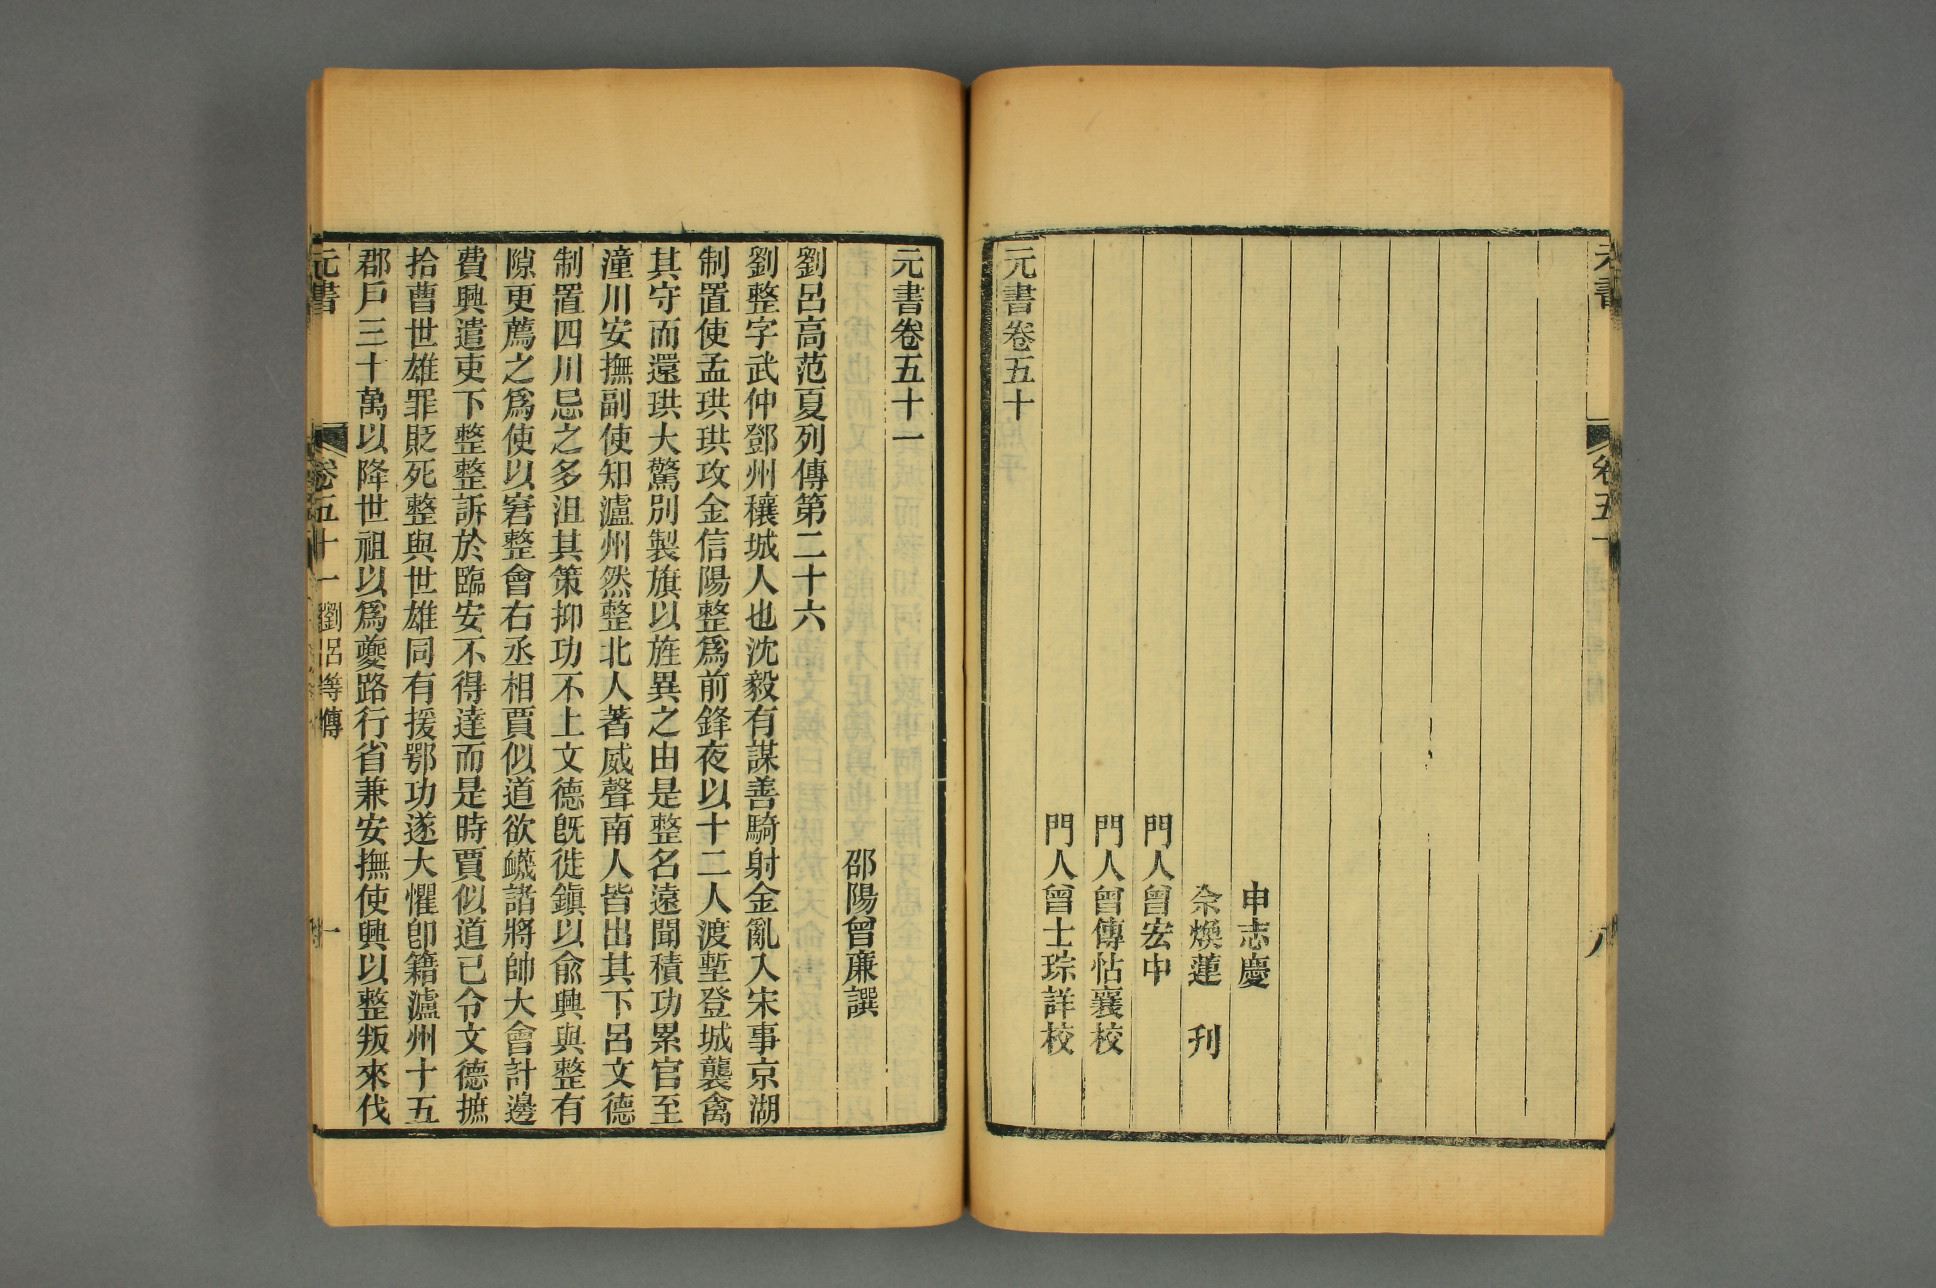 元書
卷五十
八
申志慶
佘煥蓮　刋
門人曾宏中
門人曾傳怙襄校
門人曾士琮詳校
元書卷五十
元書卷五十一
邵陽曾廉譔
劉呂高范夏列傳第二十六
劉整字武仲鄧州穰城人也沈毅有謀善騎射金亂入宋事京湖
制置使孟珙珙攻金信陽整爲前鋒夜以十二人渡塹登城襲禽
其守而還珙大驚別製旗以旌異之由是整名遠聞積功累官至
潼川安撫副使知瀘州然整北人著威聲南人皆出其下呂文德
制置四川忌之多沮其策抑功不上文德旣徙鎭以俞興與整有
隙更薦之爲使以窘整會右丞相賈似道欲衊諸將帥大會計邊
費興遣吏下整整訴於臨安不得達而是時賈似道已令文德摭
拾曹世雄罪貶死整與世雄同有援鄂功遂大懼卽籍瀘州十五
郡戶三十萬以降世祖以爲夔路行省兼安撫使興以整叛來伐
元書
卷五十一
劉呂等傳
一